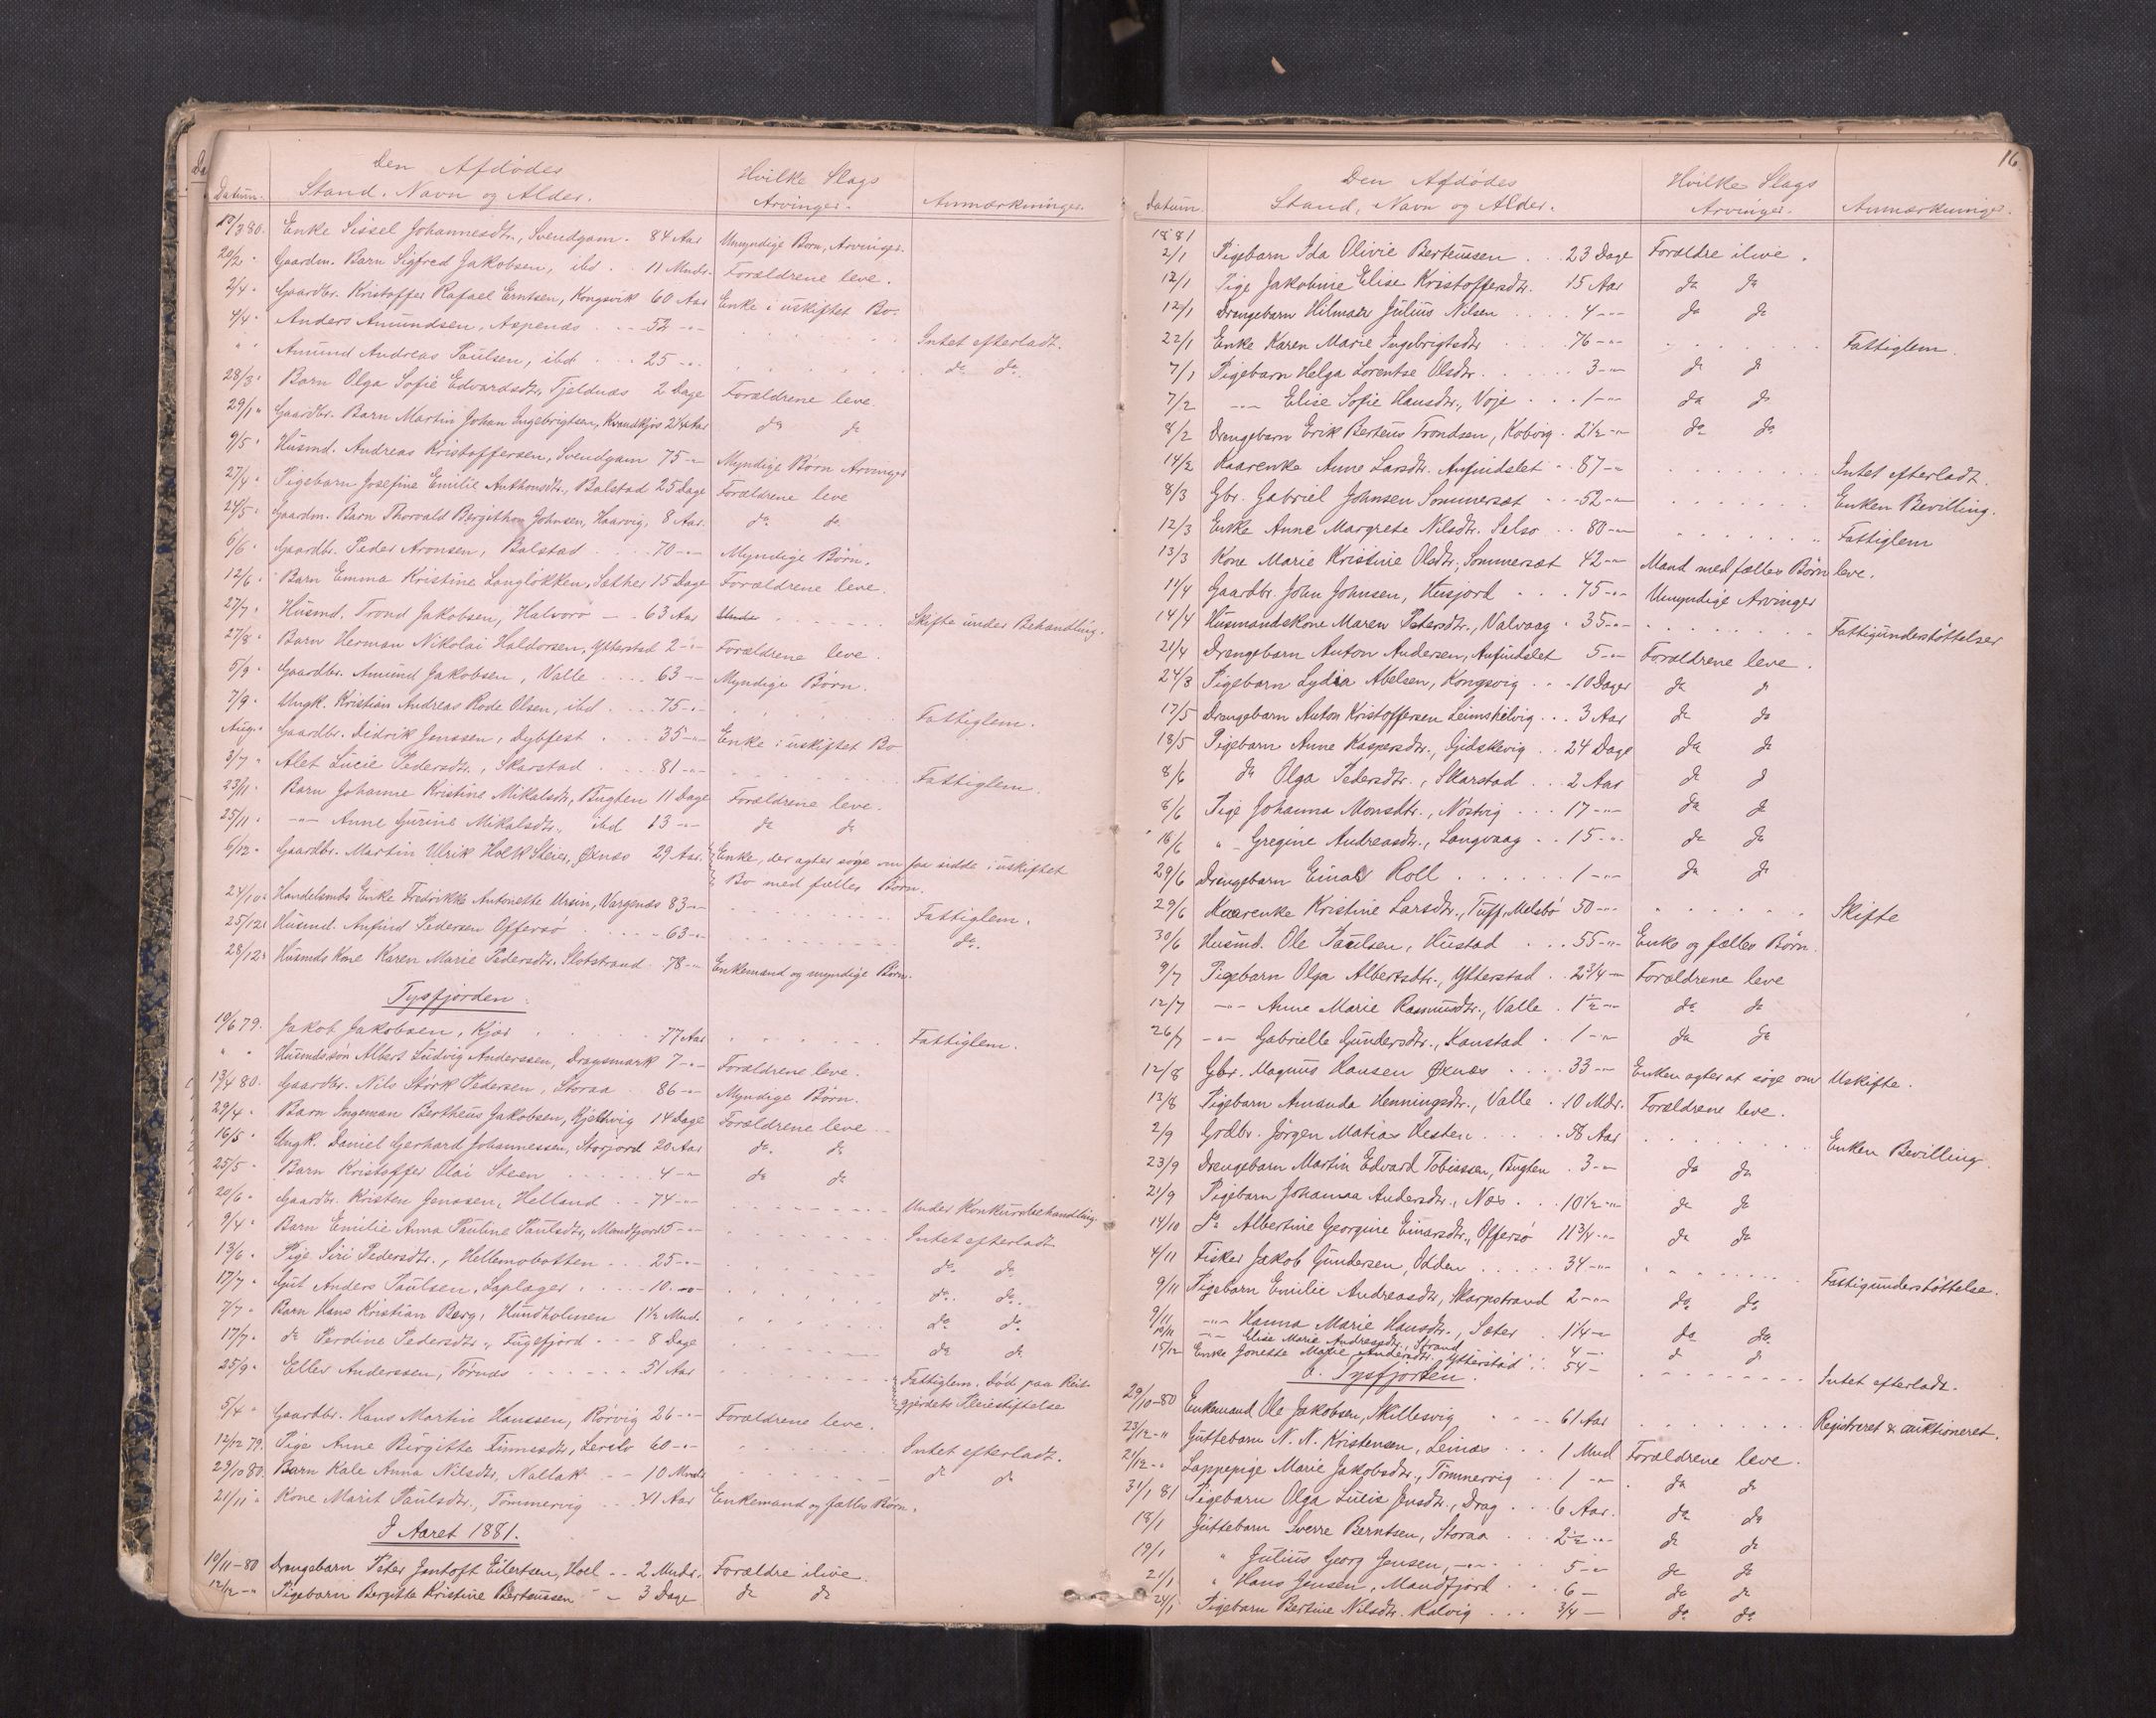 Den Afdødes
Stand. Navn og Alder.
Hvilke Slags
Arvinger.
Datum.
Anmærkninger.
19/3 80. Enke Sissel Johannesdtr., Svendgam. 84 Aar Umyndige Born, Arvinger.
20/2 " Gaardm. Barn Sigfred Jakobsen, ibd . . 11 Mndr. Forældrene leve.
2/4 " Gaardbr. Kristoffer Rafael Erntsen, Kongsvik 60 Aar Enke i uskiftet Bo.
4/4 " Anders Amundsen, Aspenæs . . . 52 -"- Intet efterladt.
" " Amund Andreas Paulsen, ibd . . . 25 -"- do do
28/3 " Barn Olga Sofie Edvardsdtr, Fjeldnæs 2 Dage Forældrene leve.
29/1 " Gaardbr. Barn Martin Johan Ingebrigtsen, Kvandkjos 2 1/4 Aar do do
9/5 " Husmd. Andreas Kristoffersen, Svendgam 75 -"- Myndige Børn Arvinger
27/4 " Pigebarn Josefine Emilie Anthonsdtr., Balstad 25 Dage Forældrene leve
24/5 " Gaardm. Barn Thorvald Bergithon Johnsen, Haarvig, 8 Aar. do. do.
6/6 " Gaardbr. Peder Aronsen, Balstad . . . . 70 -"- Myndige Børn.
12/6 " Barn Emma Kristine Langløkken, Sæther 15 Dage Forældrene leve.
27/7 " Husmd. Trond Jakobsen, Halvorø — . 63 Aar Skifte under Behandling.
27/8 " Barn Herman Nikolai Haldorsen, Ytterstad 2 -"- Forældrene leve.
5/9 " Gaardbr. Amund Jakobsen, Valle . . . . 63 -"- Myndige Børn.
7/9 " Ungk. Kristian Andreas Rode Olsen, ibd . . . 75 -"- Fattiglem.
Aug. " Gaardbr. Didrik Jenssen, Dybfest . . . 35 -"- Enke i uskiftet Bo
3/7 " Alet Lucie Pedersdtr., Skarstad . . . . 81 -"- Fattiglem.
23/11 " Barn Johanne Kristine Mikalsdtr, Bugten 11 Dage Forældrene leve.
25/11 " -"- Anne Gurine Mikalsdtr., ibd 13 -"- do do
6/12 " Gaardbr. Martin Ulrik Holk Steier, Øxnæs 29 Aar. Enke, der agter søge om faa sidde i uskiftet
Bo med fælles Børn.
24/10 " Handelsmds Enke Fredrikke Antonette Ursin, Vargenæs 83 -"- Fattiglem.
25/12 " Husmd. Anfind Pedersen Offersø . . . . . 63 -"- do.
28/12 " Husmds Kone Karen Marie Pedersdtr. Slotstrand . 78 -"- Enkemand og myndige Børn.
Tysfjorden.
19/6 79. Jakob Jakobsen, Kjær . . . . . 77 Aar Fattiglem.
" " Husmdssøn Albert Ludvig Anderssen, Dragsmark 7 -"- Forældrene leve.
13/4 80. Gaardbr. Nils Størk Pedersen, Storaa . . 86 -"- Myndige Børn.
29/4 " Barn Ingeman Bertheus Jakobsen, Kjelkvig 14 Dage Forældrene leve
16/5 " Ungk. Daniel Gerhard Johannessen, Storjord 20 Aar do. do
25/5 " Barn Kristoffer Olai Steen . . . . . . 4 -"- do do
20/6 " Gaardbr. Kristen Jenssen, Helland . . . 74 -"- Under Konkursbehandling.
9/4 " Barn Emilie Anna Pauline Paulsdtr, Mandfjord 5 -"- Intet efterladt
13/6 " Pige Siri Pedersdtr., Hellemobotten . . . 25 -"- do. do.
17/7 " Gut Anders Paulsen, Laplager . . . . . 10 -"- do. do.
7/7 " Barn Hans Kristian Berg, Hundholmen 1 1/2 Mnd. do. do.
17/7 " do Peroline Pedersdtr., Fuglfjord . . . 8 Dage do do
25/9 " Ellev Anderssen, Tørnæs . . . . . . 51 Aar Fattiglem. Død paa Reit-
gjerdets Pleiestiftelse
5/4 " Gaardbr. Hans Martin Hanssen, Rørvig 26 -"- Forældrene leve.
12/12 79. Pige Anne Birgitte Finnesdtr, Lerelv 60 -"- Intet efterladt.
29/10 80. Barn Kale Anna Nilsdtr, Nallak . . 10 Mndr do do
21/11 " Kone Marit Paulsdtr., Tømmervig . . . 41 Aar Enkemand og fælles Børn.
I Aaret 1881.
10/11 – 80 Drengebarn Peter Jentoft Eilertsen, Hoel . . 2 Mndr. Forældre ilive.
12/12 – " Pigebarn Bergitte Kristine Berteussen – 3 Dage do do
16.
Den Afdødes
Stand, Navn og Alder.
Hvilke Slags
Arvinger.
Datum.
Anmærkninger.
1881
2/1 Pigebarn Ida Olivie Berteussen . . . 23 Dage Forældre ilive.
12/1 Pige Jakobine Elise Kristoffersdtr. 15 Aar do do
12/1 Drengebarn Hilmar Julius Nilsen . . . . 4 -"- do do
22/1 Enke Karen Marie Ingebrigtsdtr . . . . 76 -"- Fattiglem.
7/1 Pigebarn Helga Lorentse Olsdtr. . . . . . 3 -"- do do
7/2 -"- Elise Sofie Hansdtr., Voje . . . . 1 -"- do do
8/2 Drengebarn Erik Berteus Trondsen, Kobvig . 2 1/2 -"- do. do.
14/2 Kaarenke Anne Larsdtr. Anfindslet . . 87 -"- Intet efterladt.
8/3 Gbr. Gabriel Johnsen Sommersæt . . . 52 -"- Enken Bevilling.
12/3 Enke Anne Margrete Nilsdtr. Selsø . . 80 -"- Fattiglem
13/3 Kone Marie Kristine Olsdtr, Sommersæt 42 -"- Mand med fælles Børn leve.
11/4 Gaardbr. John Johnsen, Husjord . . . 75 -"- Umyndige Arvinger
14/4 Husmandskone Maren Petersdtr., Valvaag . 35 -"- Fattigunderstøttelser
21/4 Drengebarn Anton Andersen, Anfindslet 5 -"- Forældrene leve.
24/3 Pigebarn Lydia Abelsen, Kongsvig . . . 10 Dage do do
17/5 Drengebarn Anton Kristoffersen Leimshelvig . . . 3 Aar do do
18/5 Pigebarn Anne Kaspersdtr., Gidskevig . . 24 Dage do do
8/6 do Olga Pedersdtr., Skarstad . . . 2 Aar do do
8/6 Pige Johanna Monsdtr., Nøstvig . . . 17 -"- do do
16/6 " Gregine Andreasdtr., Langvaag . . 15 -"- do do
29/6 Drengebarn Einar Roll . . . . . . 1 -"- do do
29/6 Kaarenke Kristine Larsdtr., Tuff, Melsbø 50 -"- Skifte
30/6 Husmd. Ole Paulsen, Hustad . . . 55 -"- Enke og fælles Børn.
9/7 Pigebarn Olga Albertsdtr., Ytterstad . . 2 3/4 — Forældrene leve
12/7 -"- Anne Marie Rasmusdtr., Valle . 1 1/2 -"- do do
26/7 -"- Gabrielle Gundersdtr., Kanstad . 1 -"- do do
12/8 Gbr. Magnus Hansen Øxnæs . . . . 33 -"- Enken agter at søge om Uskifte.
13/8 Pigebarn Amanda Henningsdtr., Valle . 10 Mdr. Forældrene leve.
2/9 Grdbr. Jørgen Matias Hesten . . . . . 58 Aar Enken Bevilling.
23/9 Drengebarn Martin Edvard Tobiassen, Bugten . 3 -"- do do
21/9 Pigebarn Johanna Andersdtr., Næs . . . 10 1/2 -"- do do
14/10 Do Albertine Georgine Einarsdtr., Offersø 11 3/4 -"- do do
4/11 Fisker Jakob Gundersen, Odden . . . . . 34 -"- Fattigunderstøttelse.
9/11 Pigebarn Emilie Andreasdtr, Skarpstrand 2 -"- do do
9/11 -"- Hanna Marie Hansdtr., Sæter . 1 1/4 -"- do do.
19/11 -"- Elise Marie Andreasdtr., Strand 4 -"- do do
15/12 Enke Jonette Marie Andersdtr. Ytterstad . . 54 - Intet efterladt.
b. Tysfjorden.
29/10-80 Enkemand Ole Jakobsen, Skillesvig . . . . 61 Aar Registreret & auktioneret.
23/12-" Guttebarn N. N. Kristensen, Leinæs . . . 1 Mnd Forældrene leve.
21/12-" Lappepige Marie Jakobsdtr., Tømmervig . . 1 -"- do do
31/1 81 Pigebarn Olga Lucie Jensdtr., Drag . . . 6 Aar. do do
18/1 Guttebarn Sverre Berntsen, Storaa . . . 2 1/2 -"- do do
19/1 " Julius Georg Jensen, -"- . . . 5 -"- do do
21/1 " Hans Jensen, Mandfjord . . . 6 — do do
24/1 Pigebarn Bertine Nilsdtr. Kalvig . . . 3/4 — do do